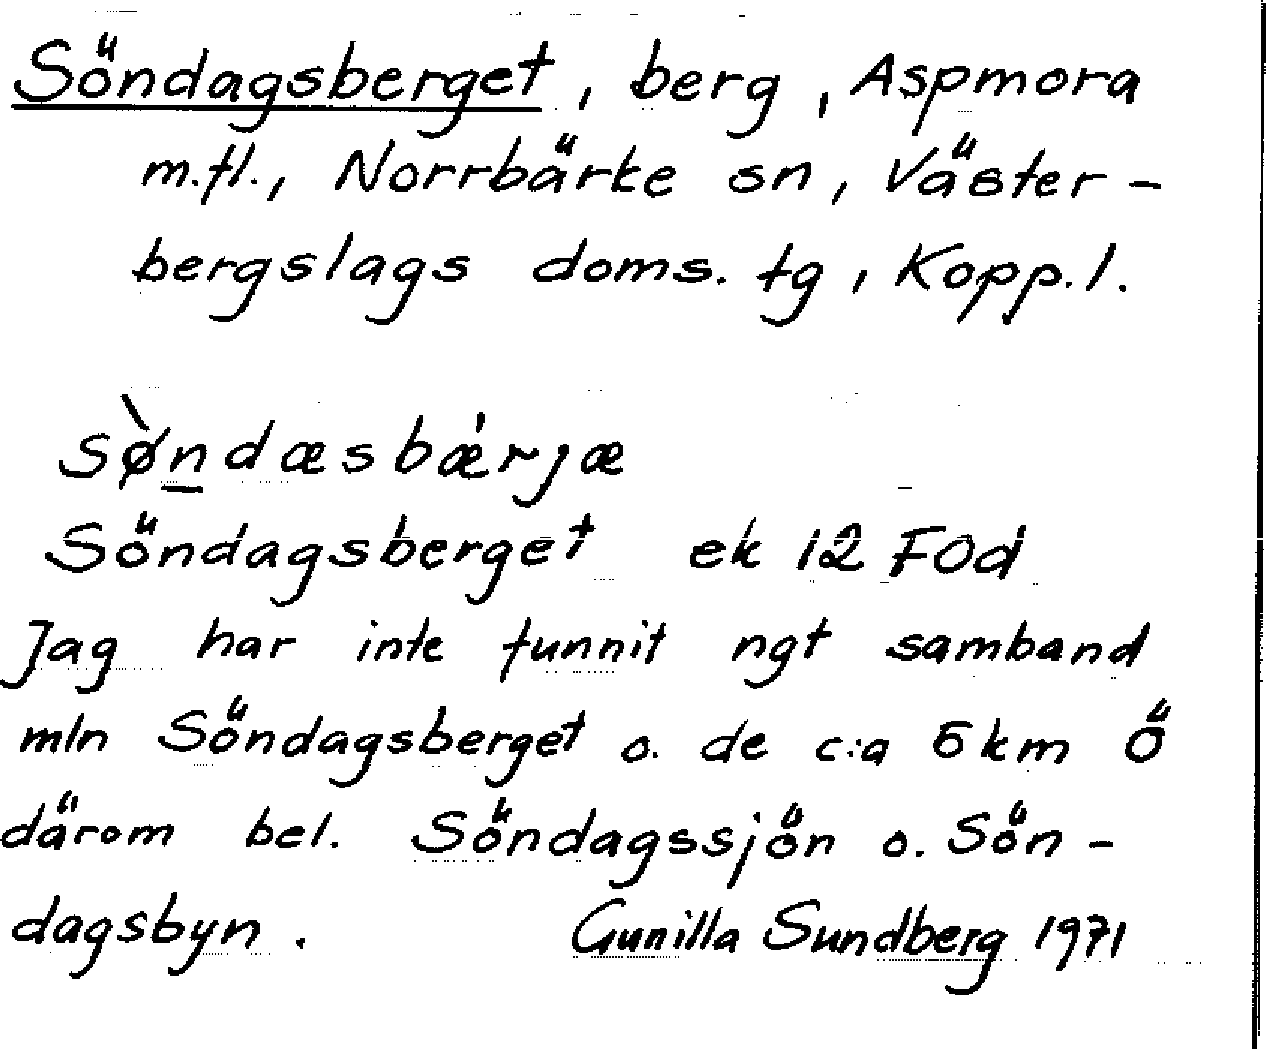 Söndagsberget, berg, Aspmora
m.fl., Norrbärke sn, Väster-
bergslags doms. tg, Kopp.l.
sø̀n̲dæsbǽrjæ
Söndagsberget ek 12 F0d
Jag har inte funnit ngt samband
mln Söndagsberget o. de c:a 6 km Ö
därom bel. Söndagssjön o. Sön-
dagsbyn.
Gunilla Sundberg 1971